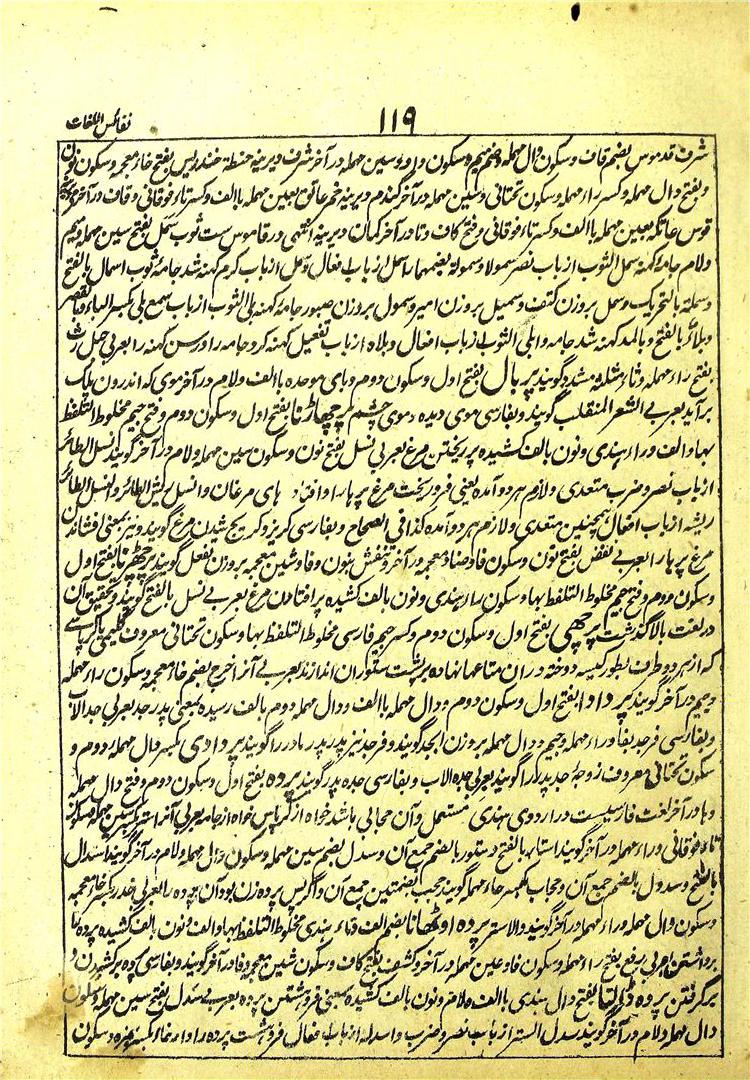 نفائس اللغات
١١٩
شرف قدموس بضم قاف وسکون دال مهمله وضم میم وسکون واو وسین مهمله در آخر شرف دیرینه حنطة خندریس بفتح خاء معجمه وسکون نون
وبفتح دال مهمله وکسر راء مهمله وسکون تحتانی وسین مهمله در آخر گندم دیرینه خمر عاتق بعین مهمله باالف وکسر تاء فوقانی وقاف در آخر
قوس عاتکه بعین مهمله باالف وکسر تاء فوقانی وفتح کاف وتا در آخر کمان دیرینه انتهی در قاموس ست ثوب سمل بفتح سین مهمله ومیم
ولام جامهٔ کهنه سمل الثوب از باب نصر سمولا وسمولة بضمهما واسمل از باب افعال وسمل از باب کرم کهنه شد جامه ثوب اسمال بالفتح
وسملة بالتحریک وسمل بروزن کتف وسمیل بروزن امیر وسمول بروزن صبور جامهٔ کهنه بلی الثوب از باب سمع بلی بکسر الباء والقصر
وبلاء بالفتح وبالمد کهنه شد جامه وابلی الثوب از باب افعال وبلاه از باب تفعیل کهنه کرد جامه را ورسن کهنه را بعربی حبل رث
بفتح راء مهمله وثاء مثلثه مشدد گویند پربال بفتح اول وسکون دوم وبای موحده باالف ولام در آخر موی که اندرون پلک
برآید بعربی الشعر المنقلب گویند وبفارسی موی دیده وموی چشم پرچهاڑنا بفتح اول وسکون دوم وفتح جیم مخلوط التلفظ
بها والف وراء هندی ونون بالف کشیده پر ریختن مرغ بعربی نسل بفتح نون وسکون سین مهمله ولام در آخر گویند نسل الطائر
از باب نصر وضرب متعدی ولازم هر دو آمده یعنی فرو ریخت مرغ پر ها را و افتاد پرهای مرغان وانسل ریش الطائر وانسل الطائر
ریشه از باب افعال همچنین متعدی ولازم هر دو آمده کذا فی الصحاح وبفارسی کریز وکریج شدن مرغ گویند ونیز بمعنی افشاندن
مرغ پر ها را بعربی نفض بفتح نون وسکون فا وضاد معجمه در آخر وتنفش بنون وفا وشین معجمه بروزن تفعل گویند پرجھڑنا بفتح اول
وسکون دوم وفتح جیم مخلوط التلفظ بها وسکون راء هندی ونون بالف کشیده پر افتادن مرغ بعربی نسل بالفتح گویند وتحقیق آن
در لغت بالا گذشت پرچھی بفتح اول وسکون دوم وکسر جیم فارسی مخلوط التلفظ بها وسکون تحتانی معروف
که از هر دو طرف بطور کیسه دوخته در ان متاعها نهاده بر پشت ستوران اندازند بعربی آنرا خرج بضم خاء معجمه وسکون راء مهمله
وجیم در آخر گویند پردادا بفتح اول وسکون دوم ودال مهمله باالف ودال مهمله دوم بالف رسیده بمعنی پدر جد بعربی جد الاب
وبفارسی فرجد بفا وراء مهمله وجیم ودال مهمله بروزن ابجد گویند وفرجد نیز پدر پدر مادر را گویند پردادی بکسر دال مهملهٔ دوم و
سکون تحتانی معروف زوجهٔ جد پدر را گویند بعربی جده الاب وبفارسی جده پدر گویند پرده بفتح اول وسکون دوم وفتح دال مهمله
وها در آخر لغت فارسیست در اردوی هندی مستعمل وآن حجابی باشد خواه از کرباس خواه از جامه بعربی آنرا ستر بکسر سین مهمله وسکون
تاء فوقانی وراء مهمله در آخر گویند استار بالفتح وستور بالضم جمع آن وسدل بضم سین مهمله وسکون دال مهمله ولام در آخر گویند اسدال
بالفتح وسدول بالضم جمع آن وحجاب بکسر حاء مهمله گویند حجب بضمتین جمع آن واگر پس پرده زن بود آن پرده را بعربی خدر بکسر خاء معجمه
وسکون دال مهمله وراء مهمله در آخر گویند والا ستر پرده اوٹھانا بضم الف وتاء هندی مخلوط التلفظ بها والف ونون بالف کشیده پرده را
برداشتن بعربی رفع بفتح راء مهمله وسکون فا وعین مهمله در آخر وکشف بفتح کاف وسکون شین معجمه وفا در آخر گویند وبفارسی پرده برکشیدن و
برگرفتن پرده ڈالنا بفتح دال هندی باالف ولام ونون بالف کشیده بمعنی فروهشتن پرده بعربی سدل بفتح سین مهمله وسکون
دال مهمله ولام در آخر گویند سدل الستر از باب نصر وضرب واسدله از باب افعال فروهشت پرده را وارخاء بکسر همزه وسکون